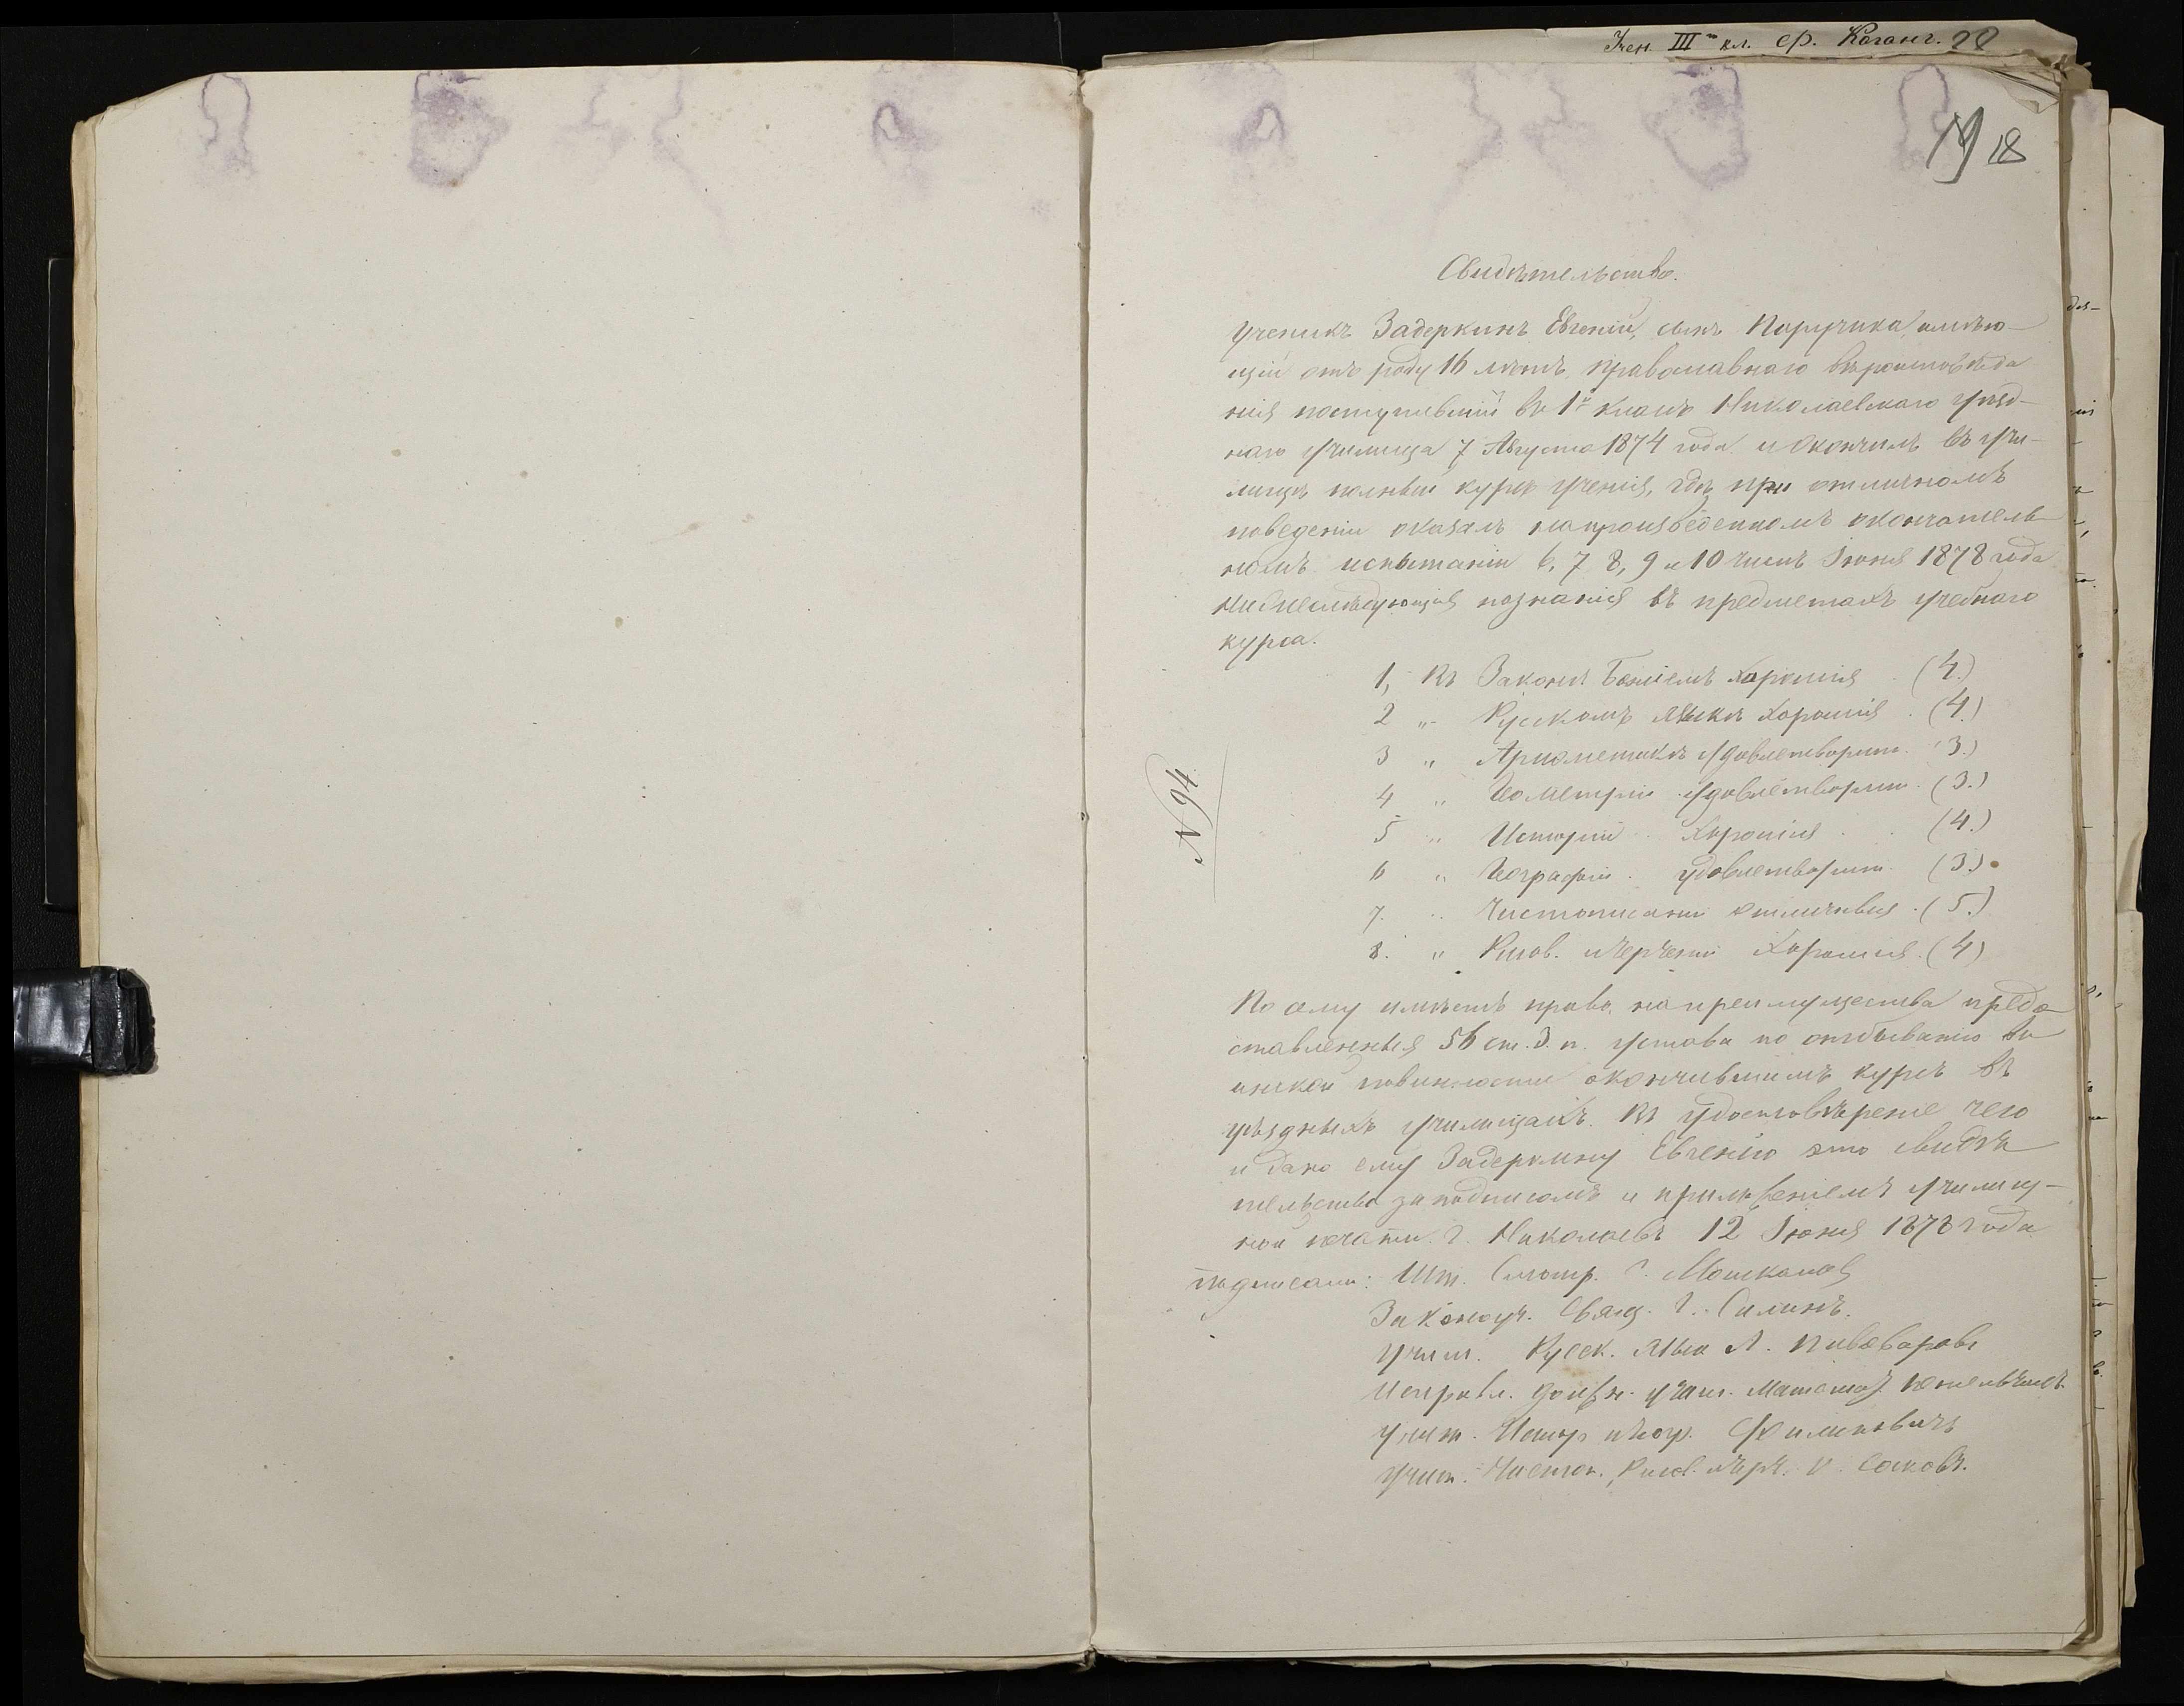 Учен. III кл. Ер. Коганъ. 20
19 18
Свидѣтельство.
Ученикъ Задеркинъ Евгеній, сынъ Поручика имѣю-
щій отъ роду 16 лѣтъ, православнаго вѣроисповѣда
нія поступившій въ 1й классъ Николаевскаго уѣзд-
наго училища 7 Августа 1874 года и окончилъ въ учи-
лищѣ полный курсъ ученія, гдѣ при отличномъ
поведеніи оказалъ на произведенномъ окончатель
номъ испытаніи 6, 7 8, 9 и 10 чиселъ Іюня 1878 года
нижеслѣдующія познанія въ предметахъ учебнаго
курса.
1, Въ Законѣ Божіемъ хорошія (4.)
2 „ Русскомъ языкѣ хорошія (4.)
3 „ Ариѳметикѣ удовлетворит. (3.)
4 „ Геометріи удовлетворит. (3.)
5 „ Исторіи хорошія (4.)
6 „ Географіи удовлетворит. (3.)
7. „ Чистописаніи отличныя (5.)
8. „ Рисов. и черченіи хорошія (4)
№ 94
По сему имѣетъ право на преимущества предо
ставленныя 56 ст. 3. п. устава по отбыванію во
инской повинности окончившимъ курсъ въ
уѣздныхъ училищахъ. Въ удостовѣреніе чего
и дано ему Задеркину Евгенію это свидѣ
тельство за подписомъ и приложеніемъ училищ-
ной печати. Г. Николаевъ 12 Іюня 1878 года
подписали: Шт. Смотр.
Законоуч. Свящ. Г. Силинъ.
Учит. Русск. языка Л. Пивоваровъ
Исправл. должн. учит. Математ.
Учит. Истор. и Геогр. Филиповичъ
Учит. Чистоп., Рисов. и Черч. Соковъ.